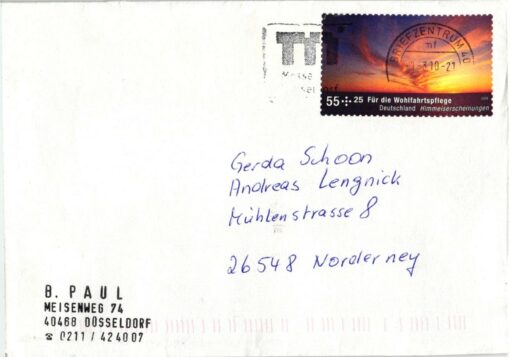 Messe
BRIEFZENTRUM 40
mf
55+25 Für die Wohlfahrtspflege
Deutschland Himmelserscheinungen
Gerda Schoon
Andreas Lengnick
Mühlenstrasse 8
26548 Norderney
B. PAUL
MEISENWEG 74
40468 DÜSSELDORF
☎ 0211 / 424007